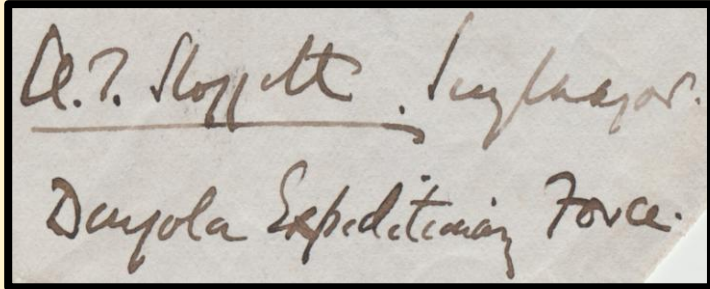 A. T. Sloggett. Surg Major.
Dongola Expeditionary Force.